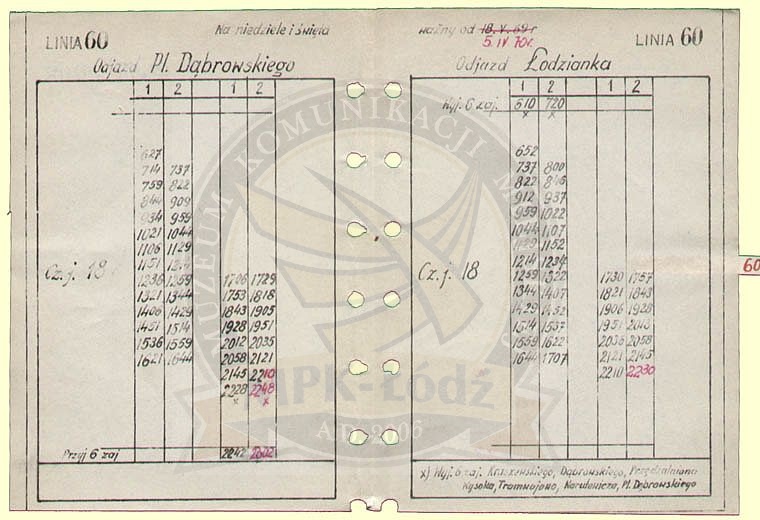 LINIA 60
Na niedziele i święta
ważny od 18.V.69r
5.IV 70r.
LINIA 60
Odjazd Pl. Dąbrowskiego
1 2 1 2
627
714 737
759 822
844 909
934 959
1021 1044
1106 1129
1151
Cz. j. 18
1236 1259 1706 1729
1321 1344 1753 1818
1406 1429 1843 1905
1451 1514 1928 1951
1536 1559 2012 2035
1621 1644 2058 2121
2145 2210
2228 2248
x x
Przyj 6 zaj 2242 2302
Odjazd Łodzianka
1 2 1 2
Wyj. 6 zaj. 610 720
x x
652
737 800
822 846
912 937
959 1022
1044 1107
1129 1152
1214 1234
Cz. j. 18
1259 1322 1730 1757
1344 1407 1821 1843
1429 1452 1906 1928
1514 1537 1951 2013
1559 1622 2036 2058
1644 1707 2121 2145
2210 2230
x) Wyj. 6 zaj. Kraszewskiego, Dąbrowskiego, Przędzalniana
Wysoka, Tramwajowa, Narutowicza, Pl. Dąbrowskiego
60
MUZEUM KOMUNIKACJI
MPK-Łódź